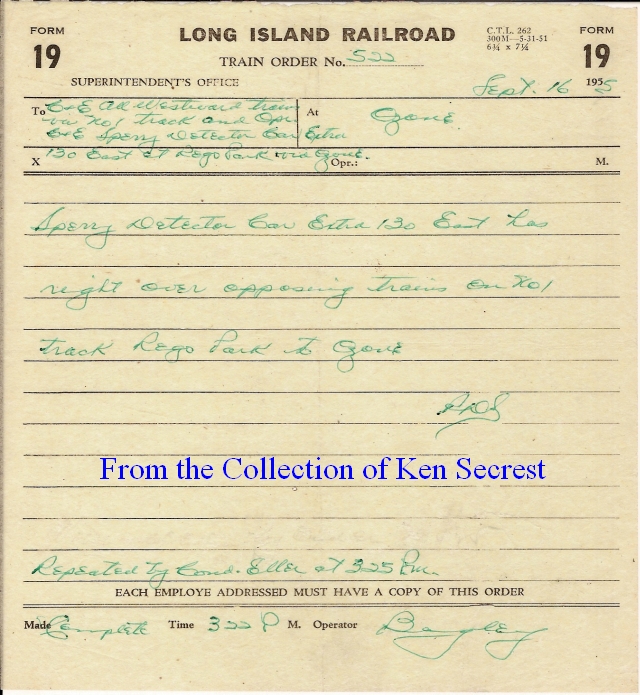 FORM
19
LONG ISLAND RAILROAD
C.T.L. 262
300M—5-31-51
6¾ x 7¼
FORM
19
TRAIN ORDER No. 522
SUPERINTENDENT'S OFFICE
Sept. 16 1955
To C&E All Westward trains
via No1 track and Opr.
C&E Sperry Detector Car Extra
130 East at Rego Park via Ozone.
At Ozone
X Opr.: M.
Sperry Detector Car Extra 130 East has
right over opposing trains on No1
track Rego Park to Ozone
From the Collection of Ken Secrest
Repeated by Cond. Eller at 325 Pm.
EACH EMPLOYE ADDRESSED MUST HAVE A COPY OF THIS ORDER
Made Complete Time 322 P M. Operator Bagley